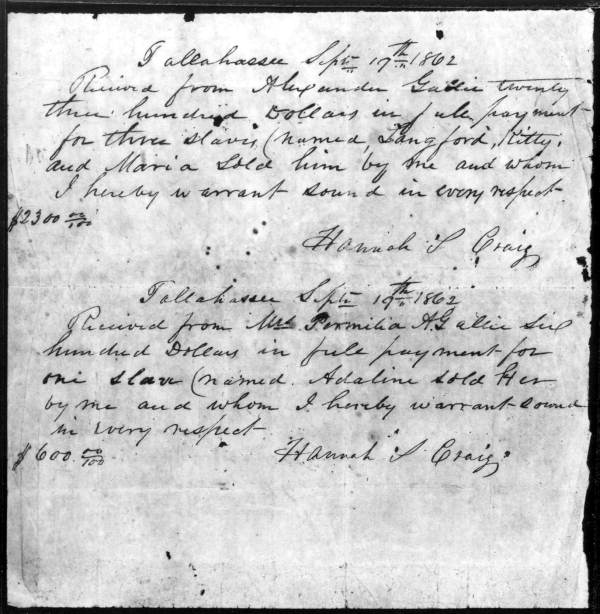 Tallahassee Sept 17th 1862
Received from Alexander Gallie twenty
three hundred Dollars in full payment
for three slaves, (named Langford, Kitty,
and Maria sold him by me and whom
I hereby warrant sound in every respect
$2300 00/100
Hannah S Craig
Tallahassee Sept 17th 1862
Received from Mrs Permilia A Gallie Six
hundred Dollars in full payment for
one slave (named Adaline sold Her
by me and whom I hereby warrant sound
in every respect
$600 00/100
Hannah S Craig